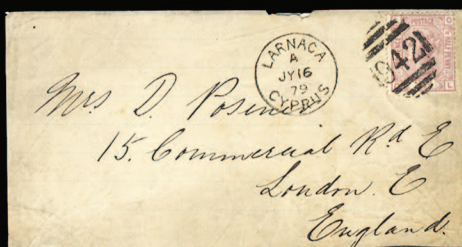 LARNACA
A
JY16
79
CYPRUS
942
Mrs D.
15. Commercial Rd E
London. E
England.